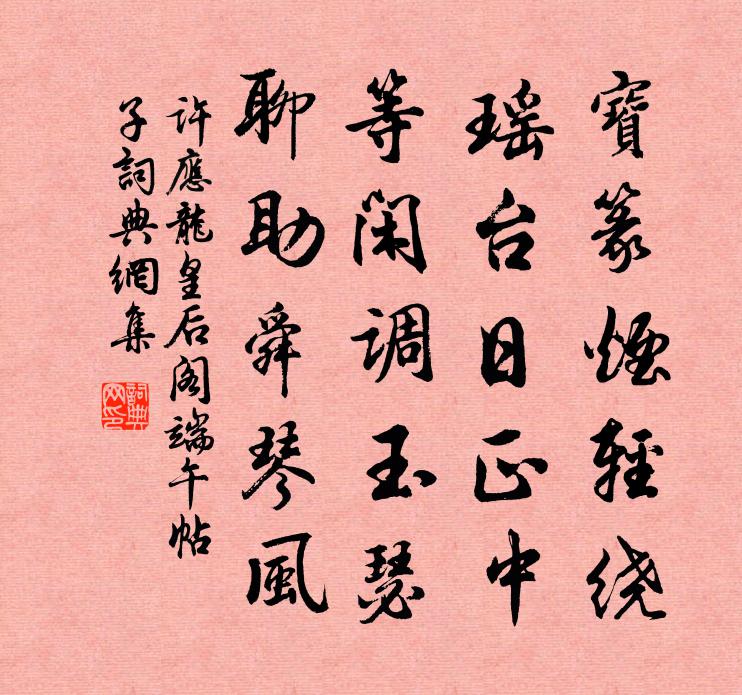 寶篆煙輕绕
瑶台日正中
等闲调玉瑟
聊助舜琴風
许應龍皇后阁端午帖
子詞典網集
詞典网印